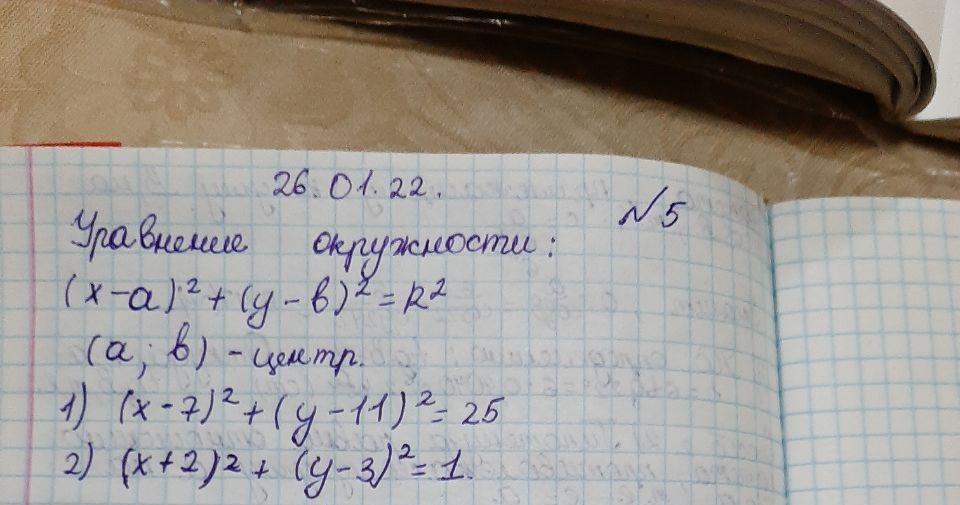 26.01.22.
№5
Уравнение окружности:
(x-a)²+(y-b)²=R²
(a; b) - центр.
1) (x-7)²+(y-11)²=25
2) (x+2)²+(y-3)²=1.